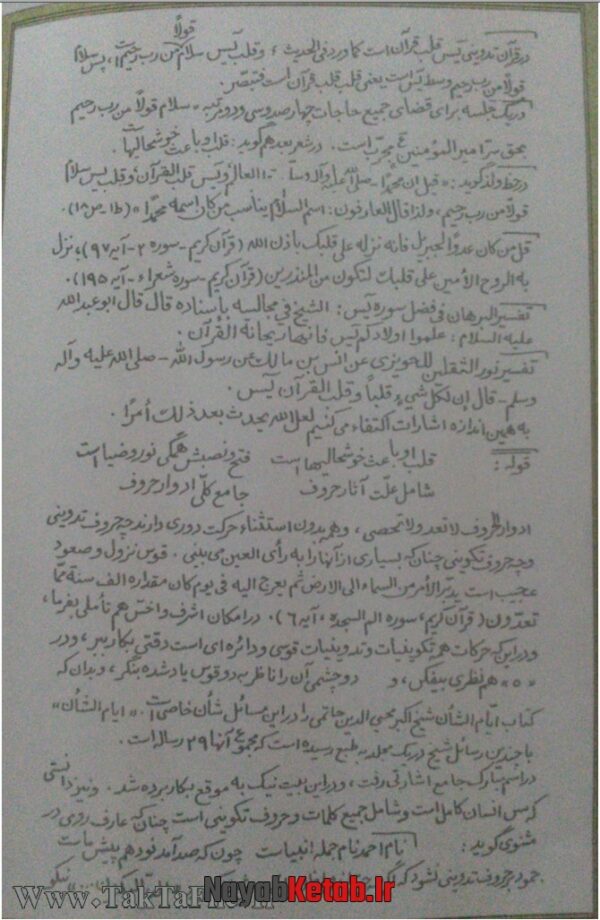 قولاً
در قرآن تدوینی یس قلب قرآن است کما ورد فی الحدیث، و قلب یس سلام من رب رحیم است، پس سلام
قولاً من رب رحیم وسط یس است یعنی قلب قلب قرآن است فتبصّر.
در یک جلسه برای قضای جمیع حاجات چهارصد و سی و دو مرتبه «سلام قولاً من رب رحیم
بحق سرّ امیرالمؤمنین» مجرّب است. در شعر بعد هم گوید: قلب او باعث خوشحالیهاست.
در خط ولد گوید: «قیل ان محمداً - صلی الله علیه و آله و سلم - العالم و یس قلب القرآن و قلب یس سلام
قولاً من رب رحیم، و لذا قال العارفون: اسم السلام یناسب من کان اسمه محمداً» (ط۱ - ص۱۸).
قل من کان عدوّاً لجبریل فانه نزله علی قلبک باذن الله (قرآن کریم - سوره ۲ - آیه ۹۷)؛ نزل
به الروح الأمین علی قلبک لتکون من المنذرین (قرآن کریم - سوره شعراء - آیه ۱۹۵).
تفسیر البرهان فی فضل سوره یس: الشیخ فی مجالسه بإسناده قال قال ابو عبدالله
علیه السلام: علموا اولادکم یس فانها ریحانة القرآن.
تفسیر نور الثقلین للحویزی عن انس بن مالک عن رسول الله - صلی الله علیه و آله
و سلم - قال إن لکل شیء قلباً و قلب القرآن یس.
به همین اندازه اشارات اکتفاء می کنیم لعل الله یحدث بعد ذلک أمراً.
قوله: قلب او باعث خوشحالیها است فتح و نصبش همگی نور و ضیا است
شامل علّت آثار حروف جامع کلّی ادوار حروف
ادوار الحروف لا تعد و لا تحصی، و هم بدون استثناء حرکت دوری دارند چه حروف تدوینی
و چه حروف تکوینی چنان که بسیاری از آنها را به رأی العین می بینی. قوس نزول و صعود
عجیب است یدبّر الأمر من السماء الی الارض ثم یعرج الیه فی یوم کان مقداره الف سنة ممّا
تعدّون (قرآن کریم، سوره الم السجده، آیه ۶). در امکان اشرف و اخسّ هم تأملی بفرما،
و در این که حرکات همه تکوینیات و تدوینیات قوسی و دائره ای است دقتی بکار ببر، و در
«ه» هم نظری بیفکن، و دو چشمی آن را ناظر به دو قوس یاد شده بنگر، و بدان که
کتاب ایّام الشأن شیخ اکبر محیی الدین حاتمی را در این مسائل شأن خاصی است. «ایام الشأن»
با چندین رسائل شیخ در یک مجلد به طبع رسیده است که مجموع آنها ۲۹ رساله است.
در اسم مبارک جامع اشارتی رفت، و در این بیت نیک به موقع بکار برده شد. و نیز دانستی
که س انسان کامل است و شامل جمیع کلمات و حروف تکوینی است چنان که عارف رومی در
مثنوی گوید: نام احمد نام جمله انبیاست چون که صد آمد نود هم پیش ماست
جمود به حروف تدوینی نشود که
NayabKetab.Ir